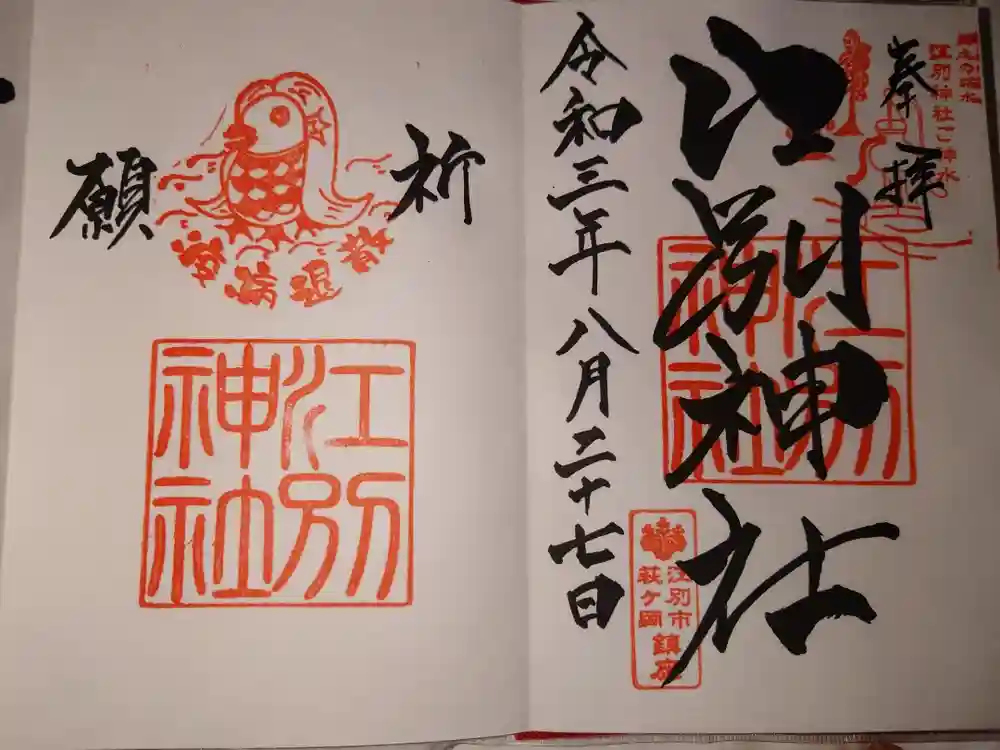 江別神社ご神水
奉拝
江別神社
江別神社
江別市
萩ヶ岡
鎮座
令和三年八月二十七日
祈願
疫病退散
江別神社